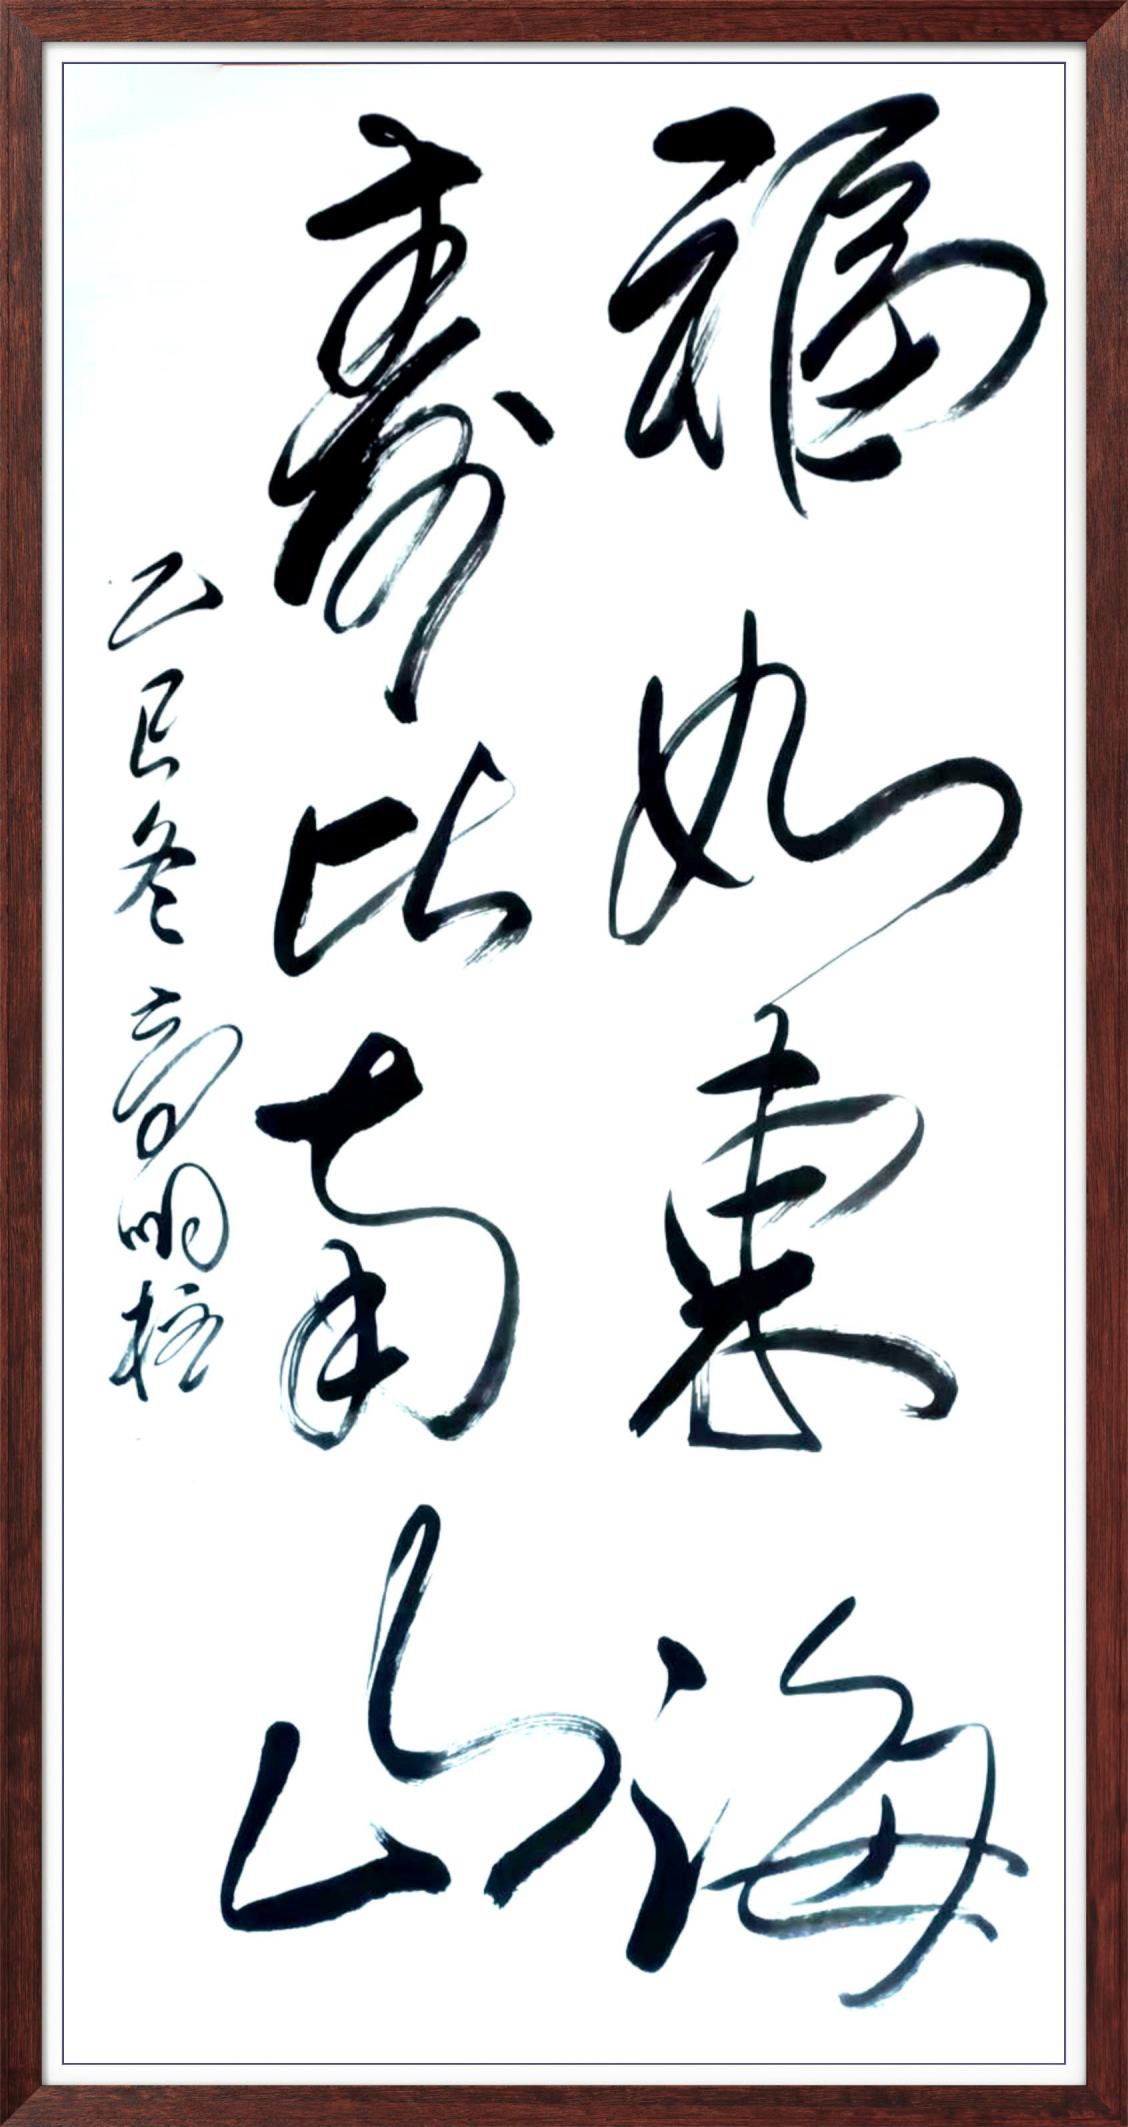 福如东海
寿比南山
乙巳冬高明柱